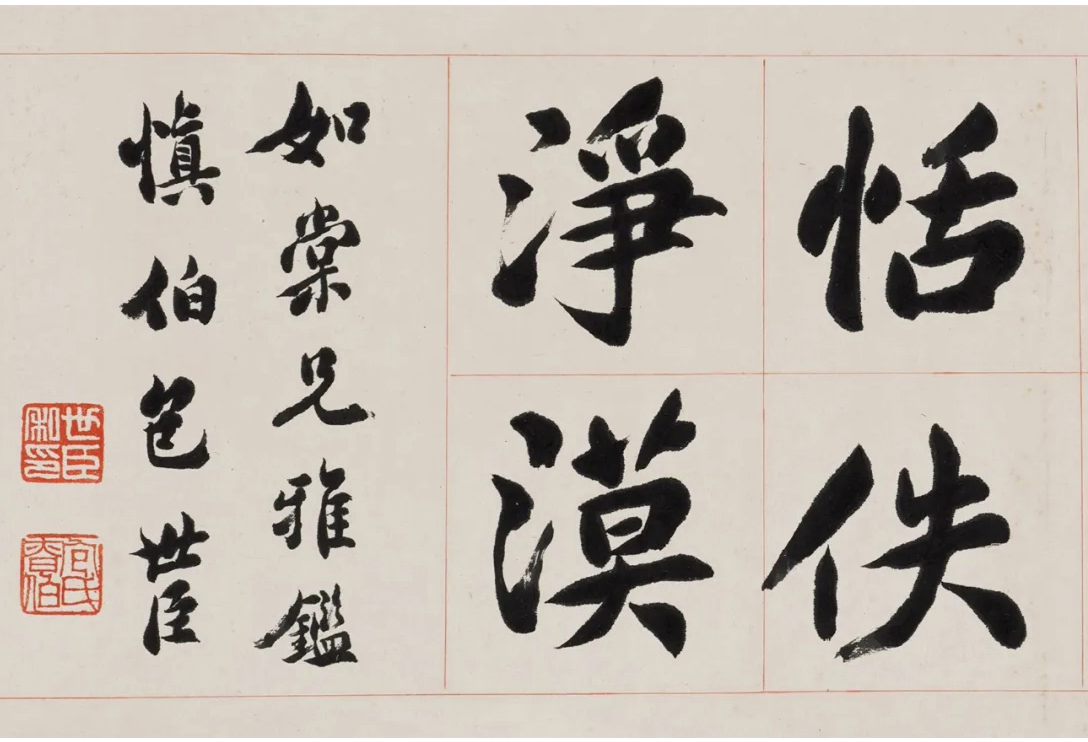 恬佚
淨漠
如棠兄雅鑑
慎伯包世臣
世臣私印